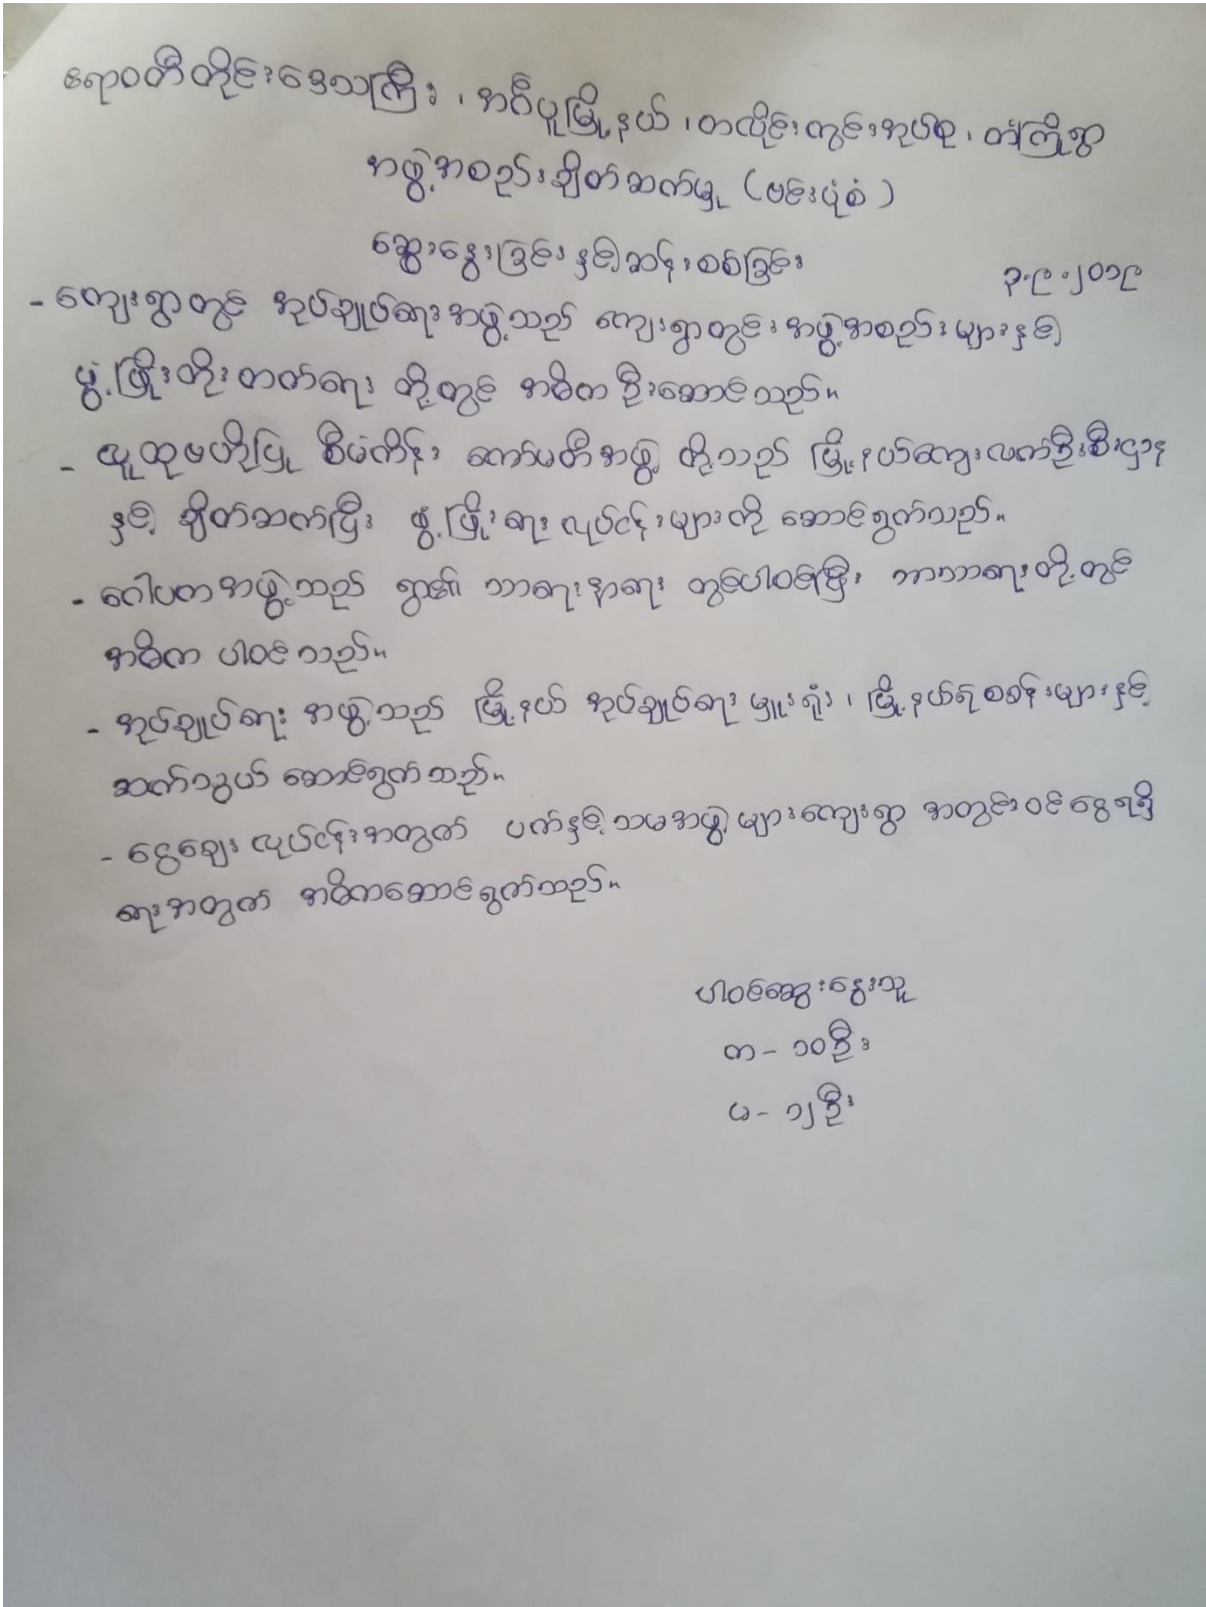 ဧရာဝတီတိုင်းဒေသကြီး ၊ အင်္ဂပူမြို့နယ် ၊ တလိုင်းကွင်းအုပ်စု ၊ တံကြိုရွာ
အဖွဲ့အစည်းချိတ်ဆက်မှု (ဗင်းပုံစံ)
ဆွေးနွေးခြင်းနှင့်ဆန်းစစ်ခြင်း
၃.၉.၂၀၁၉
- ကျေးရွာတွင် အုပ်ချုပ်ရေးအဖွဲ့သည် ကျေးရွာတွင်းအဖွဲ့အစည်းများနှင့်
ဖွံ့ဖြိုးတိုးတက်ရေး တို့တွင် အဓိကဦးဆောင်သည်။
- လူထုဗဟိုပြု စီမံကိန်း ကော်မတီအဖွဲ့ တို့သည် မြို့နယ်ကျေးလက်ဦးစီးဌာန
နှင့် ချိတ်ဆက်ပြီး ဖွံ့ဖြိုးရေး လုပ်ငန်းများကို ဆောင်ရွက်သည်။
- ဂေါပကအဖွဲ့သည် ရွာ၏ သာရေးနာရေး တွင်ပါဝင်ပြီး ဘာသာရေးတို့တွင်
အဓိက ပါဝင်သည်။
- အုပ်ချုပ်ရေး အဖွဲ့သည် မြို့နယ် အုပ်ချုပ်ရေးမှူးရုံး ၊ မြို့နယ်ရဲစခန်းများနှင့်
ဆက်သွယ် ဆောင်ရွက်သည်။
- ငွေချေး လုပ်ငန်းအတွက် ပက်နှင့်သမအဖွဲ့များကျေးရွာ အတွင်းဝင်ငွေရရှိ
ရေးအတွက် အဓိကဆောင်ရွက်သည်။
ပါဝင်ဆွေးနွေးသူ
က - ၁၀ဦး
မ - ၁၂ဦး